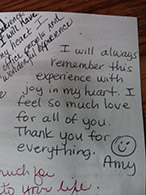 will have
my heart
people and
wonderful experience
I will always
remember this
experience with
joy in my heart. I
feel so much love
for all of you.
Thank you for
everything.
Amy
much for
to your life.